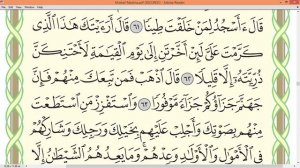 قَالَ ءَأَسْجُدُ لِمَنْ خَلَقْتَ طِينًا ٦١ قَالَ أَرَءَيْتَكَ هَٰذَا ٱلَّذِى
كَرَّمْتَ عَلَىَّ لَئِنْ أَخَّرْتَنِ إِلَىٰ يَوْمِ ٱلْقِيَٰمَةِ لَأَحْتَنِكَنَّ
ذُرِّيَّتَهُۥٓ إِلَّا قَلِيلًا ٦٢ قَالَ ٱذْهَبْ فَمَن تَبِعَكَ مِنْهُمْ فَإِنَّ
جَهَنَّمَ جَزَآؤُكُمْ جَزَآءً مَّوْفُورًا ٦٣ وَٱسْتَفْزِزْ مَنِ ٱسْتَطَعْتَ
مِنْهُم بِصَوْتِكَ وَأَجْلِبْ عَلَيْهِم بِخَيْلِكَ وَرَجِلِكَ وَشَارِكْهُمْ
فِى ٱلْأَمْوَٰلِ وَٱلْأَوْلَٰدِ وَعِدْهُمْ وَمَا يَعِدُهُمُ ٱلشَّيْطَٰنُ إِلَّا